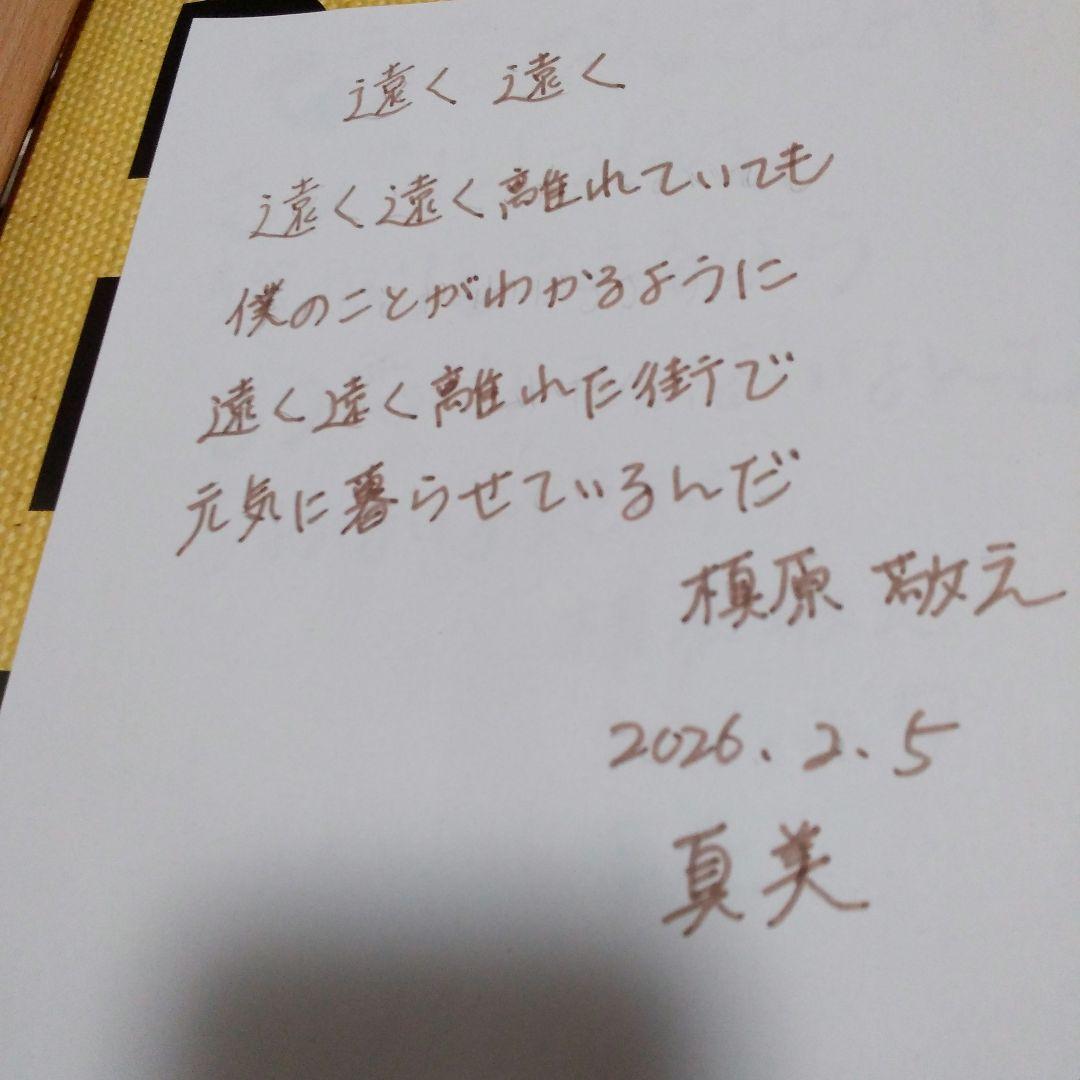 遠く 遠く
遠く遠く離れていても
僕のことがわかるように
遠く遠く離れた街で
元気に暮らせているんだ
槙原 敬之
2026.2.5
真美